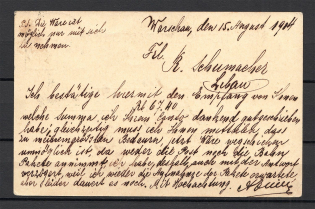 Die Ware ist
möglich nur mit sich
zu nehmen.
Warschau, den 15. August 1904
Frl. K. Schumacher
Libau
Ich bestätige hiermit den Empfang von Ihnen
Rbl 67.40
welche Summa ich Ihrem Conto dankend gutgeschrieben
habe, gleichzeitig muss ich Ihnen mitteilen, dass
zu meinem grössten Bedauern, jetzt Ware
unmöglich ist, da weder die Post noch die Bahn
Pakete annimmt ich habe deshalb auch mit der Antwort
verzögert, weil ich wieder die Aufnahme der Pakete erwartete
aber leider dauert es noch. Mit Hochachtung